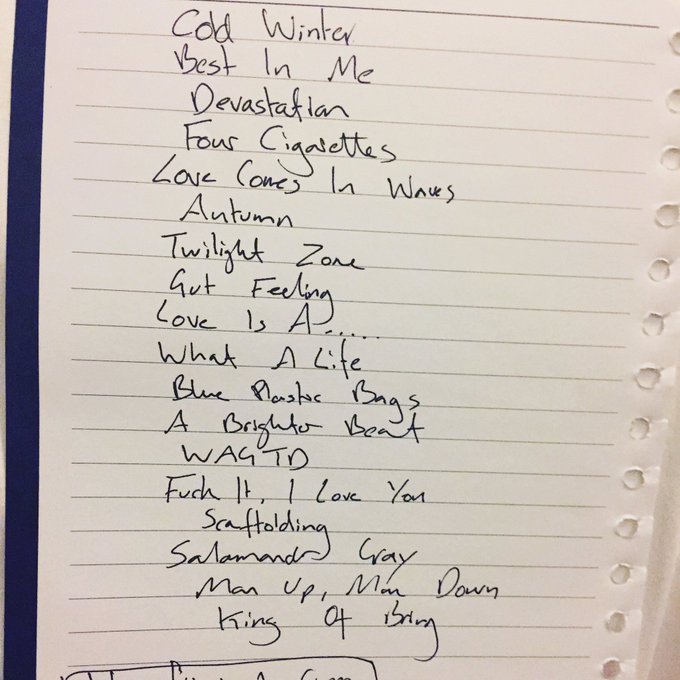 Cold Winter
Best In Me
Devastation
Four Cigarettes
Love Comes In Waves
Autumn
Twilight Zone
Gut Feeling
Love Is A.....
What A Life
Blue Plastic Bags
A Brighter Beat
WAGTD
Fuck It, I Love You
Scaffolding
Salamand Gray
Man Up, Man Down
King Of Bring